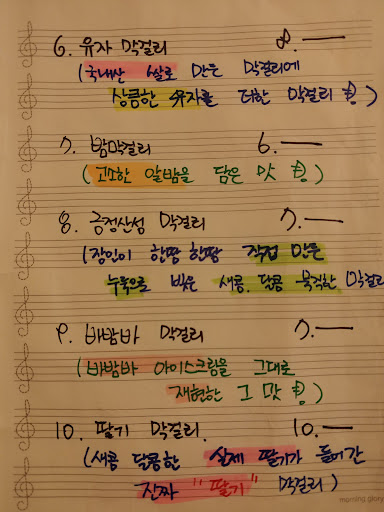 6. 유자 막걸리 8.—
(국내산 쌀로 만든 막걸리에
상큼한 유자를 더한 막걸리)
7. 밤막걸리 6.—
(고소한 알밤을 담은 맛)
8. 금정산성 막걸리 7.—
(장인이 한땀 한땀 직접 만든
누룩으로 빚은 새콤. 달콤 묵직한 막걸리
9. 바밤바 막걸리 7.—
(바밤바 아이스크림을 그대로
재현한 그 맛)
10. 딸기 막걸리. 10.—
(새콤 달콤한 실제 딸기가 들어간
진짜 "딸기" 막걸리)
morning glory